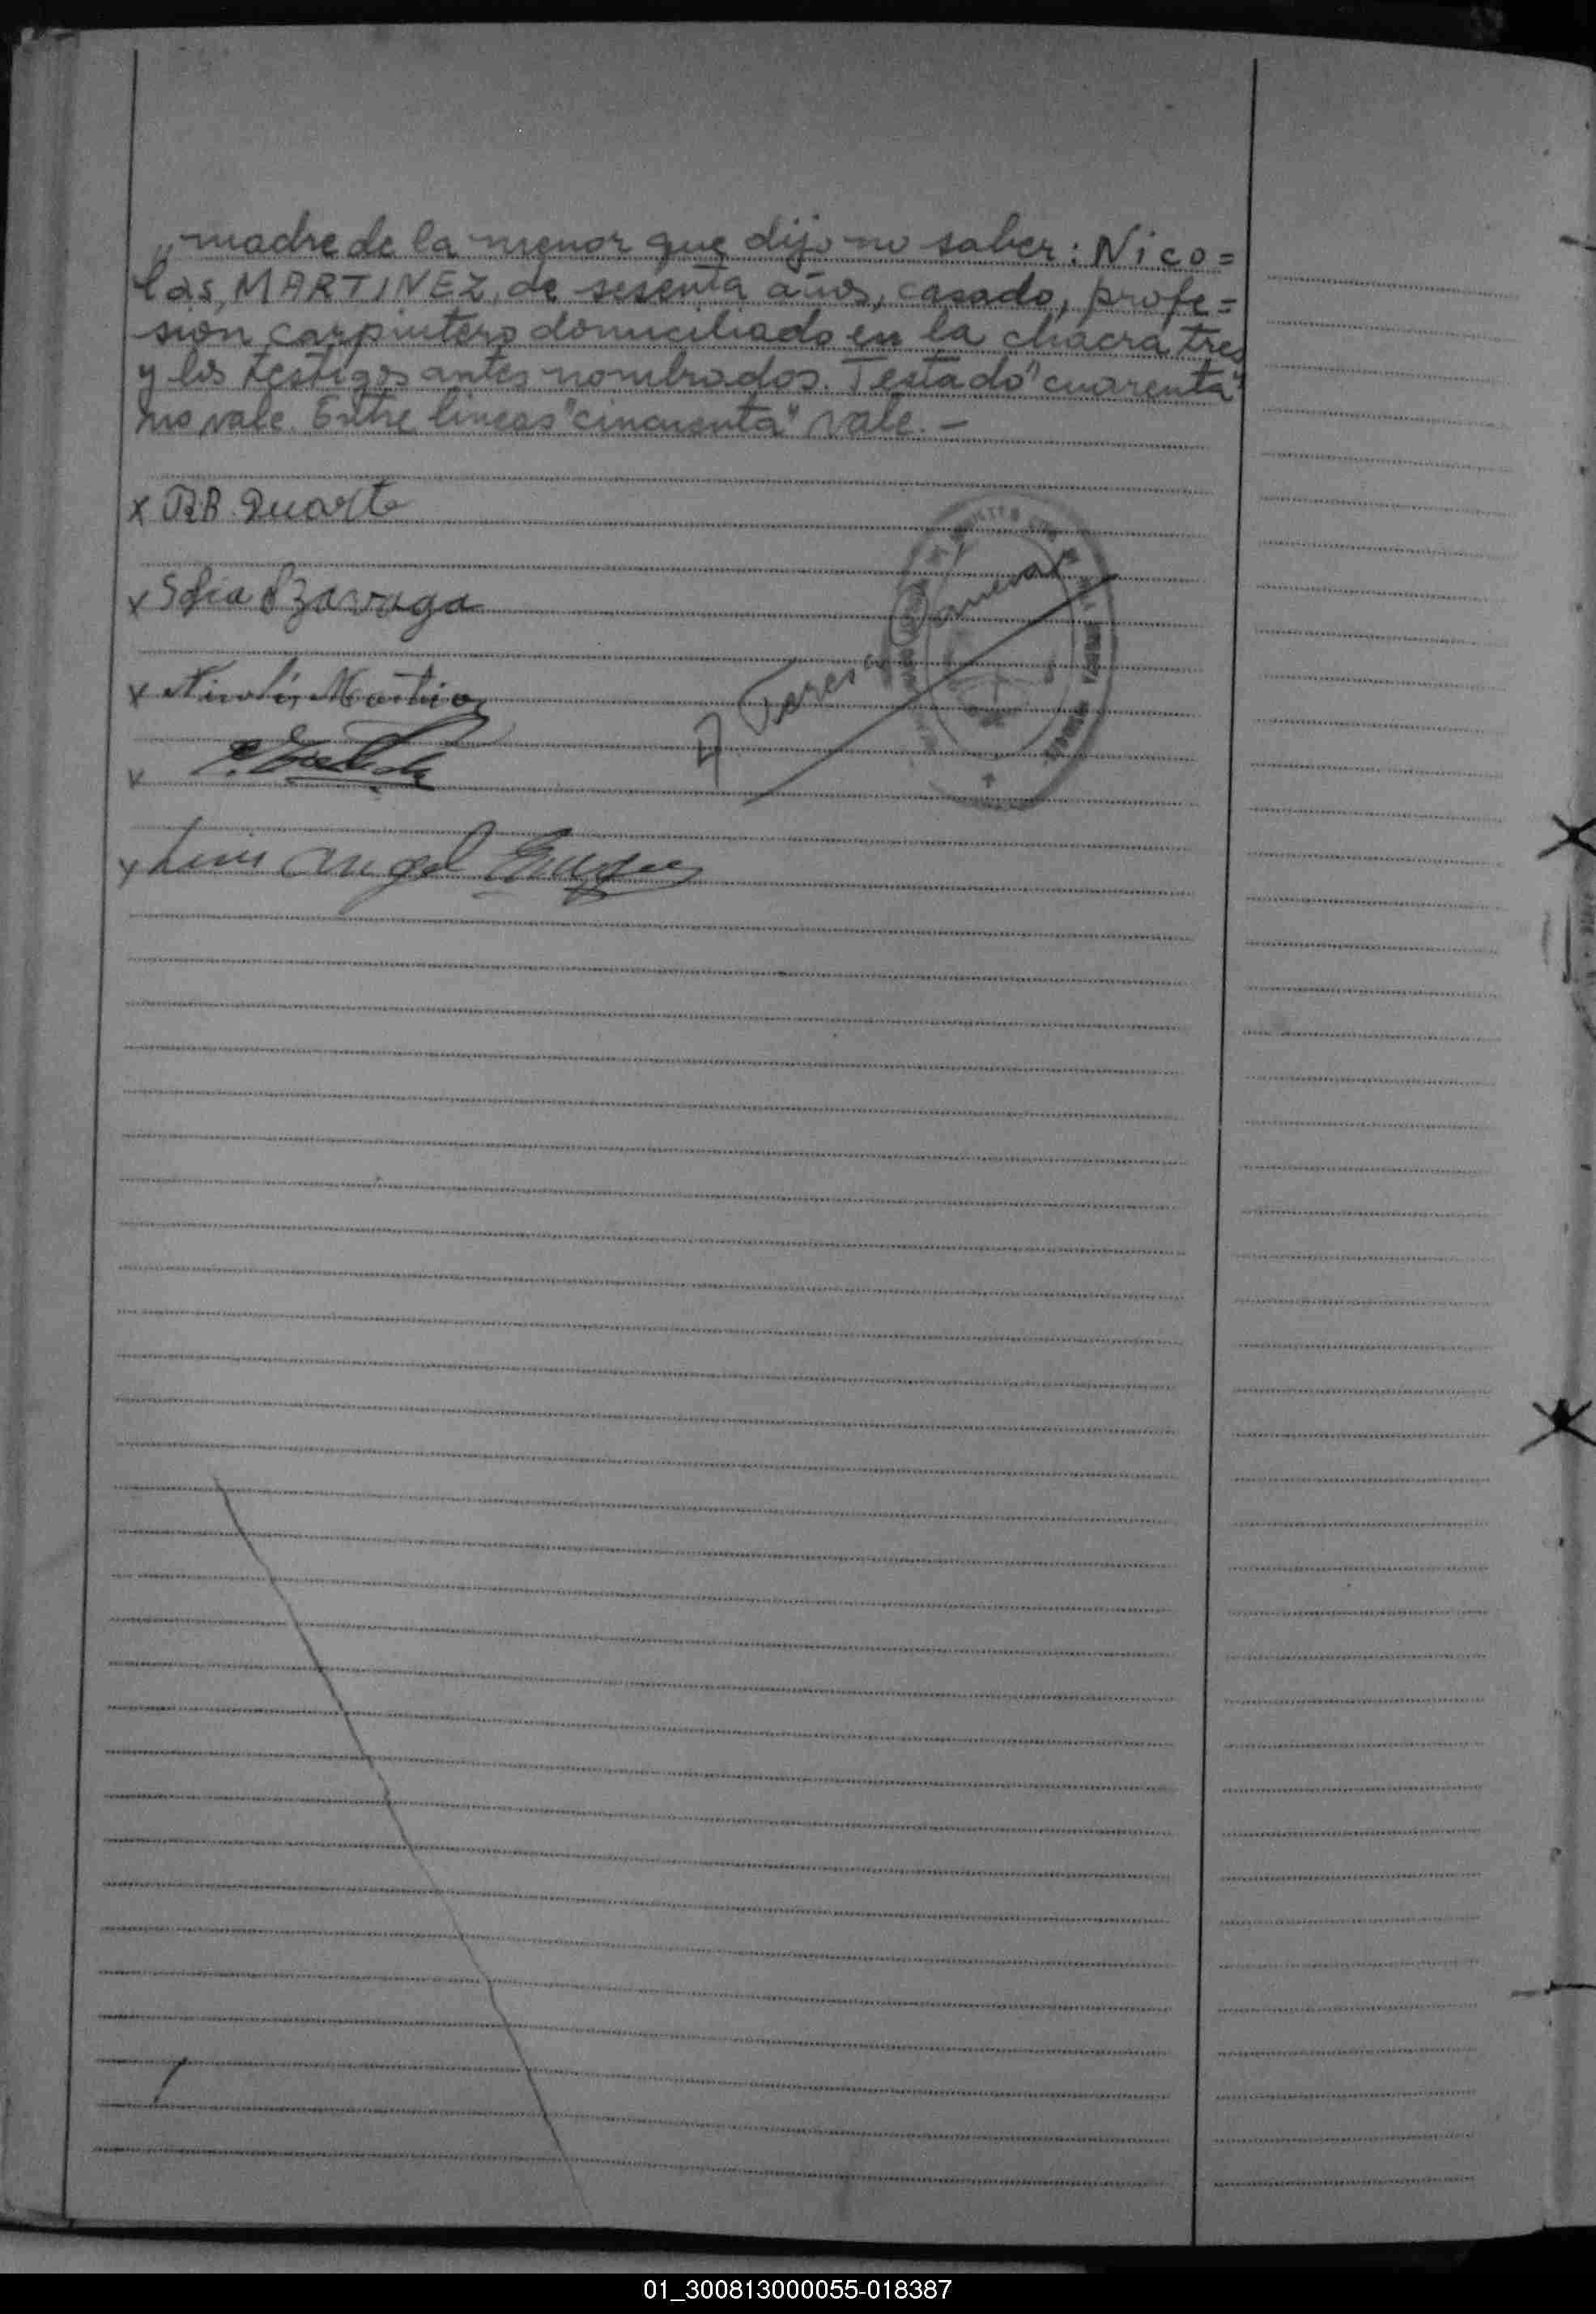 madre de la menor que dijo no saber: Nico=
las, MARTINEZ, de sesenta años, casado, profe=
sion carpintero domiciliado en la chacra tres
y los testigos antes nombrados. Testado "cuarenta"
no vale. Entre lineas "cincuenta" vale. -
x R.B. Duarte
x Sofia Szavaga
x Nicolás Martinez
x Luis Angel
Teresa
01_300813000055-018387